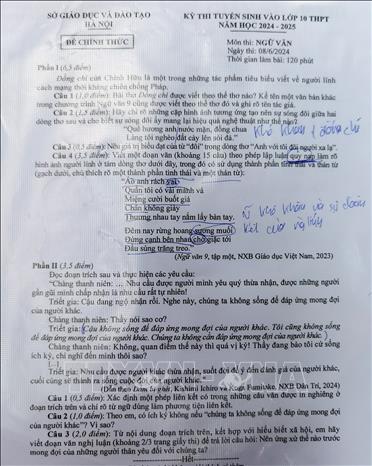 SỞ GIÁO DỤC VÀ ĐÀO TẠO
HÀ NỘI
ĐỀ CHÍNH THỨC
KỲ THI TUYỂN SINH VÀO LỚP 10 THPT
NĂM HỌC 2024 - 2025
Môn thi: NGỮ VĂN
Ngày thi: 08/6/2024
Thời gian làm bài: 120 phút
Phần I (6,5 điểm)
Đồng chí của Chính Hữu là một trong những tác phẩm tiêu biểu viết về người lính
cách mạng thời kháng chiến chống Pháp.
Câu 1 (1,0 điểm): Bài thơ Đồng chí được viết theo thể thơ nào? Kể tên một văn bản khác
trong chương trình Ngữ văn 9 cũng được viết theo thể thơ đó và ghi rõ tên tác giả.
Câu 2 (1,5 điểm): Hãy chỉ rõ những cặp hình ảnh tương ứng tạo nên sự sóng đôi giữa hai
dòng thơ sau và cho biết sự sóng đôi ấy mang lại hiệu quả nghệ thuật như thế nào?
"Quê hương anh nước mặn, đồng chua
Làng tôi nghèo đất cày lên sỏi đá."
Câu 3 (0,5 điểm): Nêu giá trị biểu đạt của từ "đôi" trong dòng thơ "Anh với tôi đôi người xa lạ".
Câu 4 (3,5 điểm): Viết một đoạn văn (khoảng 15 câu) theo phép lập luận quy nạp làm rõ
hình ảnh người lính ở tám dòng thơ dưới đây, trong đó có sử dụng thành phần tình thái và thán từ
(gạch dưới, chú thích rõ một thành phần tình thái và một thán từ):
"Áo anh rách vai
Quần tôi có vài mảnh vá
Miệng cười buốt giá
Chân không giày
Thương nhau tay nắm lấy bàn tay.
Đêm nay rừng hoang sương muối
Đứng cạnh bên nhau chờ giặc tới
Đầu súng trăng treo."
(Ngữ văn 9, tập một, NXB Giáo dục Việt Nam, 2023)
Phần II (3,5 điểm)
Đọc đoạn trích sau và thực hiện các yêu cầu:
"Chàng thanh niên: ... Nhu cầu được mình yêu quý thừa nhận, được những người
gần gũi mình chấp nhận là nhu cầu rất tự nhiên!
Triết gia: Cậu đang ngộ nhận rồi. Nghe này, chúng ta không sống để đáp ứng mong đợi
của người khác.
Chàng thanh niên: Thầy nói sao cơ?
Triết gia: Cậu không sống để đáp ứng mong đợi của người khác. Tôi cũng không sống
để đáp ứng mong đợi của người khác. Chúng ta không cần đáp ứng mong đợi của người khác.
Chàng thanh niên: Không, quan điểm thế này thì quá vị kỷ! Thầy đang bảo tôi cứ sống
ích kỷ, chỉ nghĩ đến mình thôi sao?
[...]
Triết gia: Nếu cầu được người khác thừa nhận, suốt đợi đánh giá của người khác,
cuối cùng sẽ thành ra sống cuộc đời của người khác."
Kishimi Ichiro và Koga Fumitake, NXB Dân Trí, 2024)
Câu 1 (0,5 điểm): Xác định một phép liên kết có trong những câu văn được in nghiêng ở
đoạn trích trên và chỉ rõ từ ngữ dùng làm phương tiện liên kết.
Câu 2 (1,0 điểm): Theo em, có ích kỷ không nếu "chúng ta không sống để đáp ứng mong đợi
của người khác"? Vì sao?
Câu 3 (2,0 điểm): Từ nội dung đoạn trích trên, kết hợp với hiểu biết xã hội, em hãy
viết đoạn văn nghị luận (khoảng 2/3 trang giấy thi) để trả lời câu hỏi: Nên ứng xử thế nào trước
mong đợi của những người thân yêu đối với chúng ta?
Hết